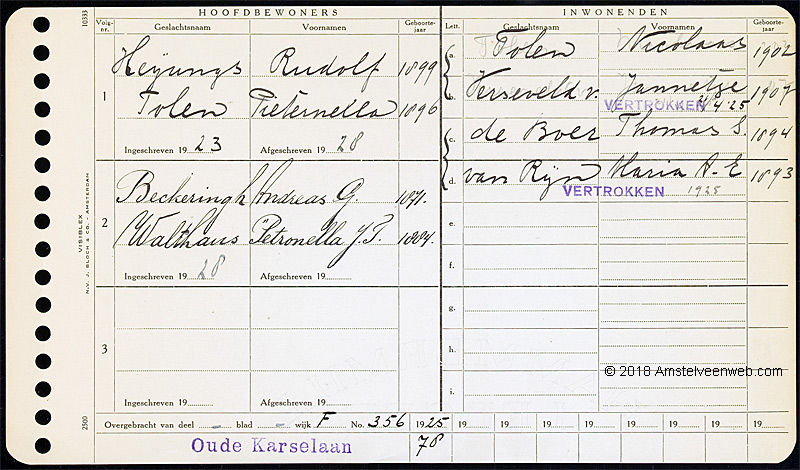 HOOFDBEWONERS
Volg-nr. Geslachtsnaam Voornamen Geboorte-jaar
1
Heijungs Rudolf 1899
Tolen Pieternella 1896
Ingeschreven 1923 Afgeschreven 1928
2
Beckeringh Andreas G. 1871.
Walthaus Petronella J.T. 1884.
Ingeschreven 1928 Afgeschreven 19
3
Ingeschreven 19 Afgeschreven 19
INWONENDEN
Lett. Geslachtsnaam Voornamen Geboorte-jaar
a. Tolen Nicolaas 1902
b. Verseveld v. Jannetje 1907
VERTROKKEN 4'25
c. de Boer Thomas S. 1894
d. van Rijn Maria A. E 1893
VERTROKKEN 1925
e.
f.
g.
h.
i.
© 2018 Amstelveenweb.com
Overgebracht van deel - blad - wijk F No. 356 1925 19 19 19 19 19 19 19
Oude Karselaan 78
10333
VISIBLEX
N.V. J. BLOCH & CO. - AMSTERDAM
2500